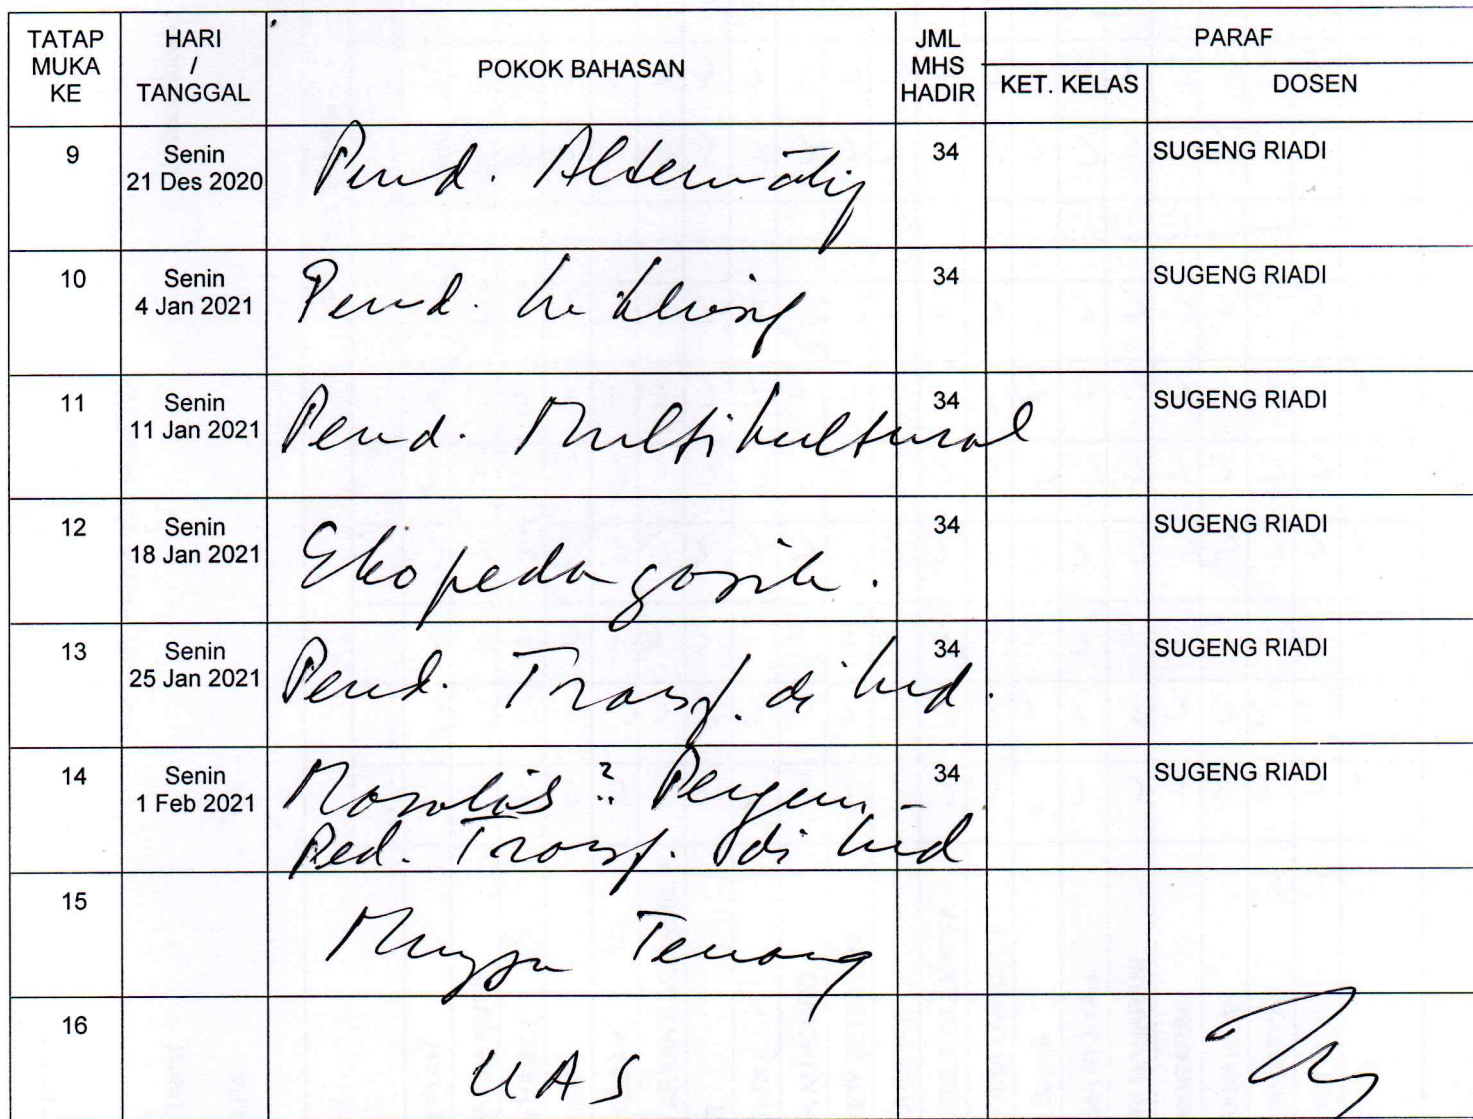 TATAP MUKA KE HARI / TANGGAL POKOK BAHASAN JML MHS HADIR PARAF
KET. KELAS DOSEN
9 Senin 21 Des 2020 Pend. Alternatif 34 SUGENG RIADI
10 Senin 4 Jan 2021 Pend. 34 SUGENG RIADI
11 Senin 11 Jan 2021 Pend. Multikultural 34 SUGENG RIADI
12 Senin 18 Jan 2021 Ekopedagogik. 34 SUGENG RIADI
13 Senin 25 Jan 2021 Pend. Transf. di Ind. 34 SUGENG RIADI
14 Senin 1 Feb 2021 34 SUGENG RIADI
Ped. Transf. di Ind
15 Minggu Tenang
16 UAS